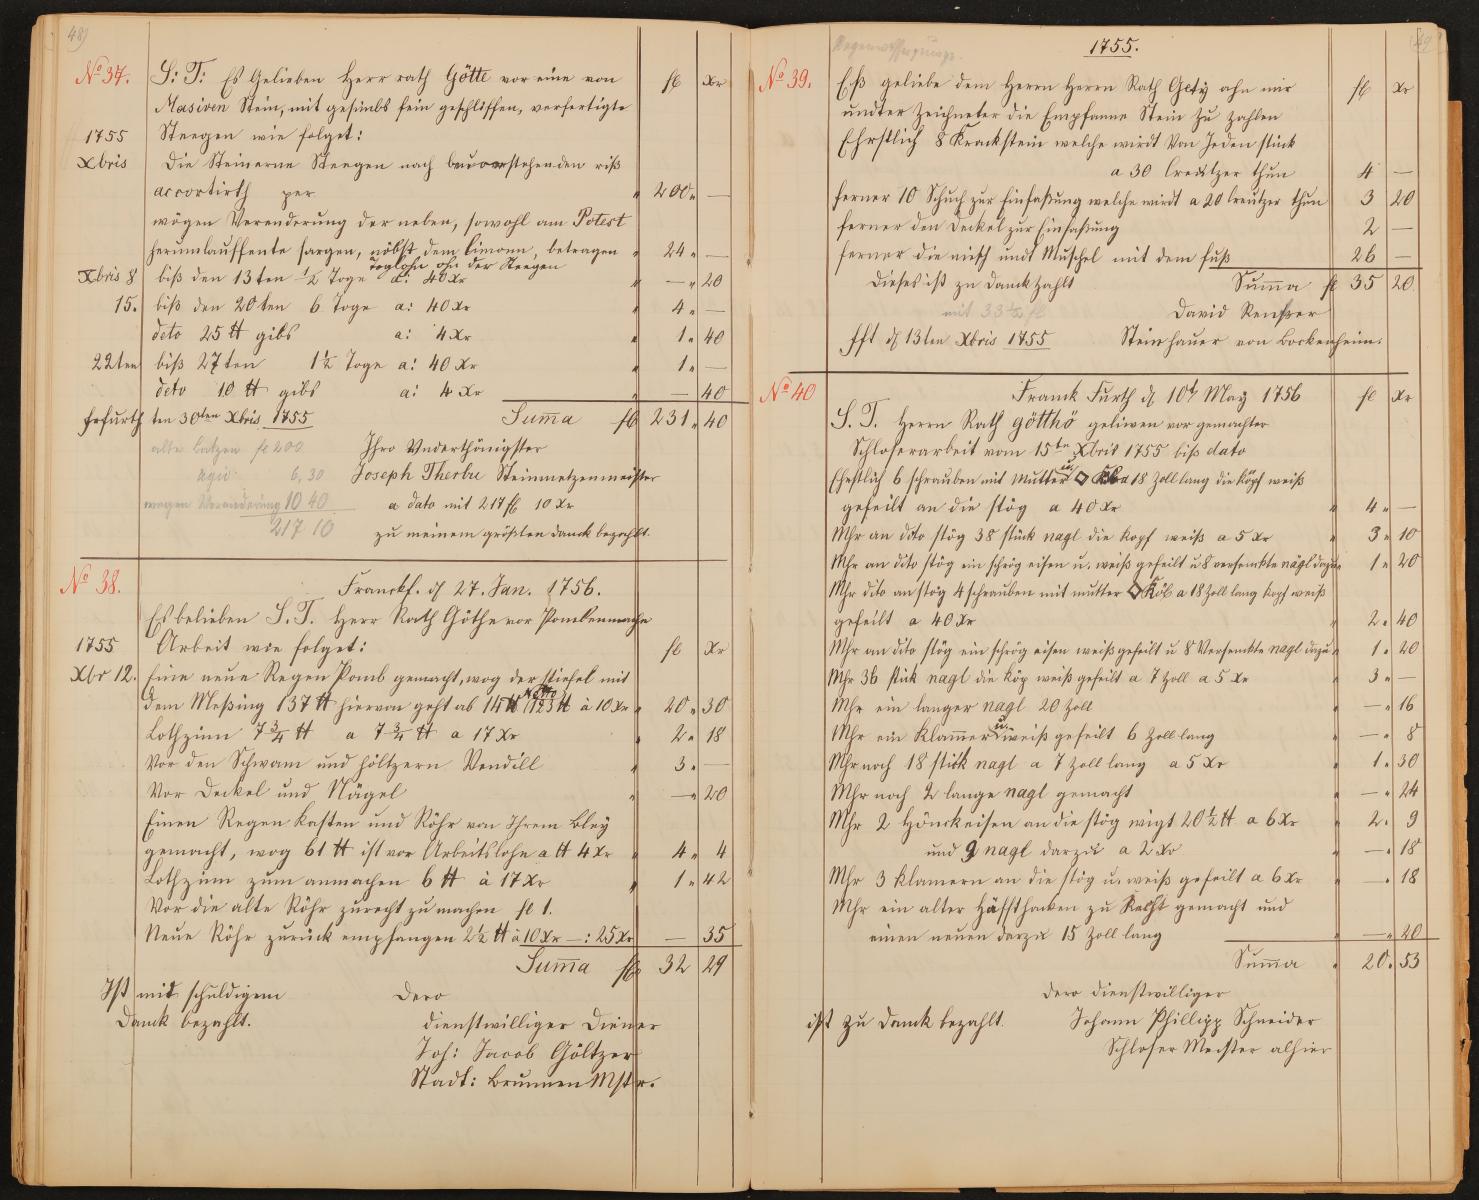 48)
No 37. S: T: Es Gelieben Herr rath Götte vor eine von fl Xr
Masiven Stein, mit gesimbs fein geschliffen, verfertigte
1755 Steegen wie folget:
Xbris Die Steinerne Steegen nach bevorstehenden riß
accortirth per " 200 " —
wögen Verenderung der neben, sowohl am Potest
herumlauffente fargen, nöbst dem Simonn, betragen " 24 " —
Toglohn ohn der Steegen
Xbris 8 biß den 13ten ½ Toge a: 40 Xr " — " 20
15. biß den 20ten 6 Toge a: 40 Xr " 4 " —
deto 25 tt gibs a: 4 Xr " 1 " 40
22ten biß 27ten 1½ Toge a: 40 Xr " 1 " —
deto 10 tt gibs a: 4 Xr " — 40
frfurth ten 30ten Xbris 1755 Summa fl 231 " 40
alte batzen fl 200 Ihro Underthönigster
agio 6, 30 Joseph Therbu Steinmetzenmeister
wegen Veränderung 10 40 a dato mit 217 fl 10 Xr
217 10 zu meinem größten danck bezahlt.
No 38. Franckf. d 27. Jan. 1756.
Es belieben S. T. Herr Rath Göthe vor Pombenmacher
1755 Arbeit wie folget: fl Xr
Xbr 12. Eine neue Regen Pomb gemacht, wog der stiefel mit
Netto
dem Meßing 137 tt hiervon geht ab 14 tt 123 tt à 10 Xr " 20 " 30
Lothzinn 7¾ tt a 7¾ tt a 17 Xr " 2 " 18
Vor den Schwam und höltzern Vendill " 3 " —
Vor Deckel und Nägel " — " 20
Einen Regen Kasten und Röhr von Ihrem Bley
gemacht, wog 61 tt ist vor Arbeitslohn a tt 4 Xr " 4 " 4
Lothzinn zum anmachen 6 tt à 17 Xr " 1 " 42
Vor die alte Röhr zurecht zu machen fl 1.
Neue Röhr zurück empfangen 2½ tt à 10 Xr —: 25 Xr — 35
Summa fl 32 29
Ist mit schuldigem Dero
Danck bezahlt. dienstwilliger Diener
Joh: Jacob Göltzer
Stadt: Brunnen Mstr.
1755.
No 39. Eß geliebe dem Herrn Herrn Rath Gety ahn mir fl Xr
undter Zeichneter die Empfanne Stein zu zahlen
Ehrstlich 8 Krackstein welche wirdt Von Jeden stück
a 30 Creutzer thun 4 —
ferner 10 Schuch zur Einfaßung welche wirdt a 20 Creutzer thun 3 20
ferner den Deckel zur Einfaßung 2 —
ferner die nisch und Muschel mit dem fuß 26 —
Dieses ist zu Danck zahlt Summa fl 35 20
mit 33½ fl David Renßer
fft d 13ten Xbris 1755 Steinhauer von Bockenheim.
No 40 Franck Furth d 10t May 1756 fl Xr
S. T. Herrn Rath götthö geliwen vor gemachter
Schloserarbeit vom 15tn Xbris 1755 biß dato
Ehrstlich 6 schrauben mit Mutter u. 18 Zoll lang die köpf weiß
gefeilt an die stög a 40 Xr " 4 " —
Mhr an dito stög 38 stück nagl die kopf weiß a 5 Xr " 3 " 10
Mhr an dito stög ein schrög eisen u. weiß gefeilt u 8 versenkte nägl dazu " 1 " 20
Mhr dito an stög 4 schrauben mit mutter Köb a 18 Zoll lang kopf weiß
gefeilt a 40 Xr " 2 " 40
Mhr an dito stög ein schrög eisen weiß gefeilt u 8 Versenkte nagl dazu " 1 " 20
Mhr 36 stick nagl die köp weiß gefeilt a 7 Zoll a 5 Xr " 3 " —
Mhr ein langer nagl 20 Zoll " — " 16
Mhr ein Klammer u. weiß gefeilt 6 Zoll lang " — " 8
Mhr noch 18 stick nagl a 7 Zoll lang a 5 Xr " 1 " 30
Mhr noch 2 lange nagl gemacht " — " 24
Mhr 2 Hönckeisen an die stög wigt 20½ tt a 6 Xr " 2 " 9
und 9 nagl darzu a 2 Xr " — " 18
Mhr 3 Klamern an die stög u. weiß gefeilt a 6 Xr " — " 18
Mhr ein alter Häffthacken zu Recht gemacht und
einen neuen darzu 15 Zoll lang " — " 20
Summa " 20 " 53
dero dienstwilliger
ist zu Danck bezahlt. Johann Phillipp Schneider
Schloser Meister alhier